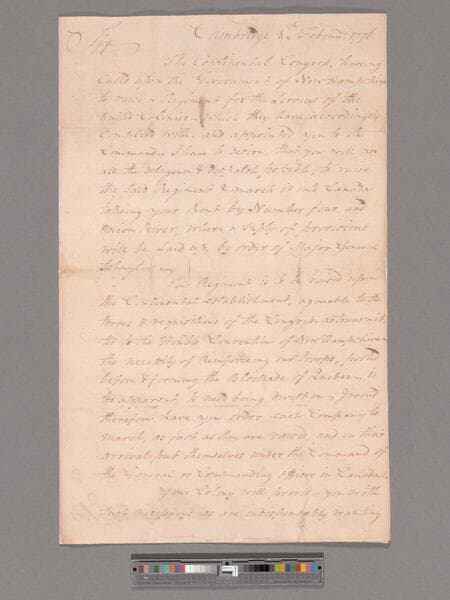 Cambridge 8th Februa: 1776
Sir,
The Continental Congress, having
Call'd upon the Government of New Hampshire
to raise a Regiment for the Service of the
United Colonies which they have accordingly
Complied with, and appointed you to the
Command. I have to desire, that you will use
all the diligence & dispatch possible, to raise
the said Regiment & march it into Canada
taking your Rout by Number four, and
Onion River, where a Supply of provisions
will be Laid up, by order of Major General
Schuyler
Your Regiment is to be raised upon
the Continental Establishment, agreable to the
terms & requisitions of the Congress transmit-
ted to the Honble Convention of New Hampshire
the necessity of Reinforceing our Troops, posted
before & forming the Blockade of Quebec, is
too apparent, to need being dwelt on, I wou'd
therefore have you order Each Company to
march, as fast as they are raised, and on their
arrival put themselves under the Command of
the General or Commanding Officer in Canada
Your Colony will provide you with
such necessarys as are indispensably wanting